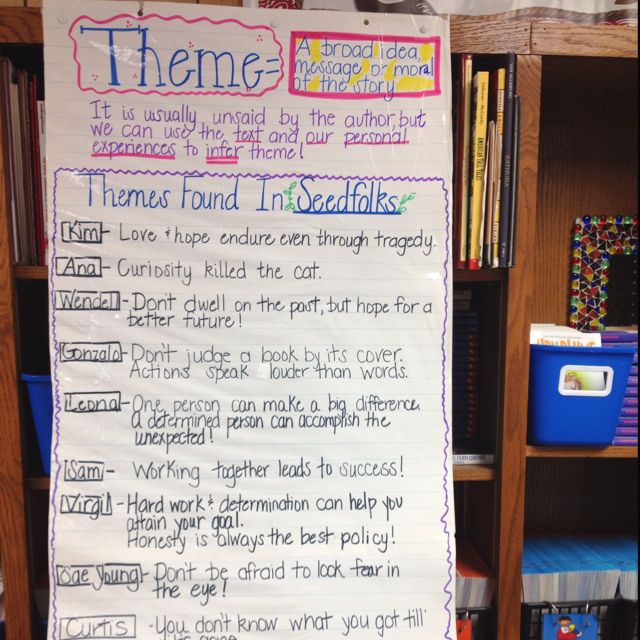 Theme=
A broad idea,
message, or moral
of the story
It is usually unsaid by the author, but
we can use the text and our personal
experiences to infer theme!
Themes Found In Seedfolks
Kim - Love & hope endure even through tragedy.
Ana - Curiosity killed the cat.
Wendell - Don't dwell on the past, but hope for a
better future!
Gonzalo - Don't judge a book by its cover.
Actions speak louder than words.
Leona - One person can make a big difference.
A determined person can accomplish the
unexpected!
Sam - Working together leads to success!
Virgil - Hard work & determination can help you
attain your goal.
Honesty is always the best policy!
Sae Young - Don't be afraid to look fear in
the eye!
Curtis - You don't know what you got till
it's gone
AMERICAN TALL TALES